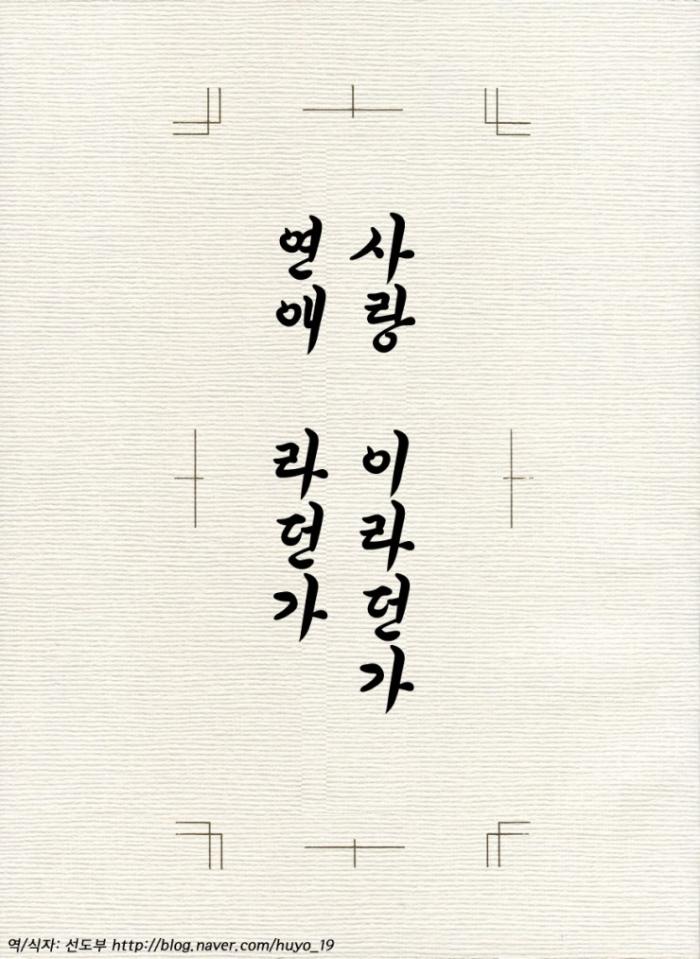 사랑 이라던가
연애 라던가
역/식자: 선도부 http://blog.naver.com/huyo_19